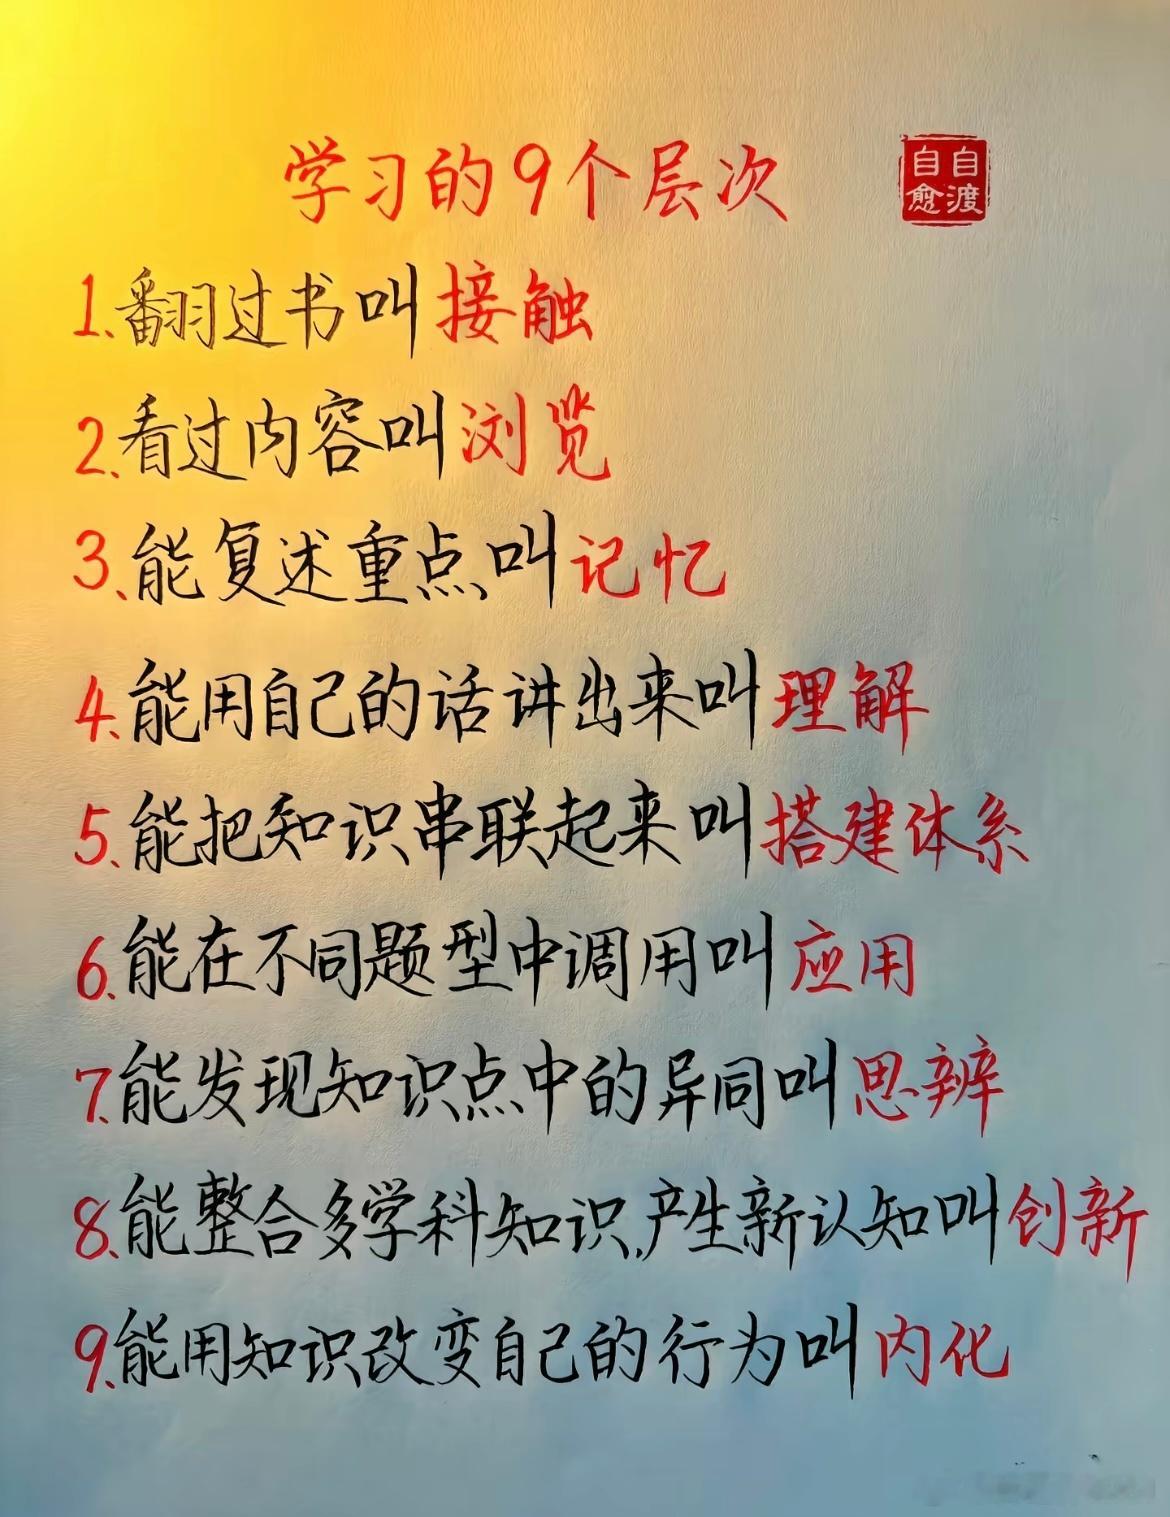 学习的9个层次
自渡
自愈
1、翻过书叫接触
2、看过内容叫浏览
3、能复述重点叫记忆
4、能用自己的话讲出来叫理解
5、能把知识串联起来叫搭建体系
6、能在不同题型中调用叫应用
7、能发现知识点中的异同叫思辨
8、能整合多学科知识,产生新认知叫创新
9、能用知识改变自己的行为叫内化